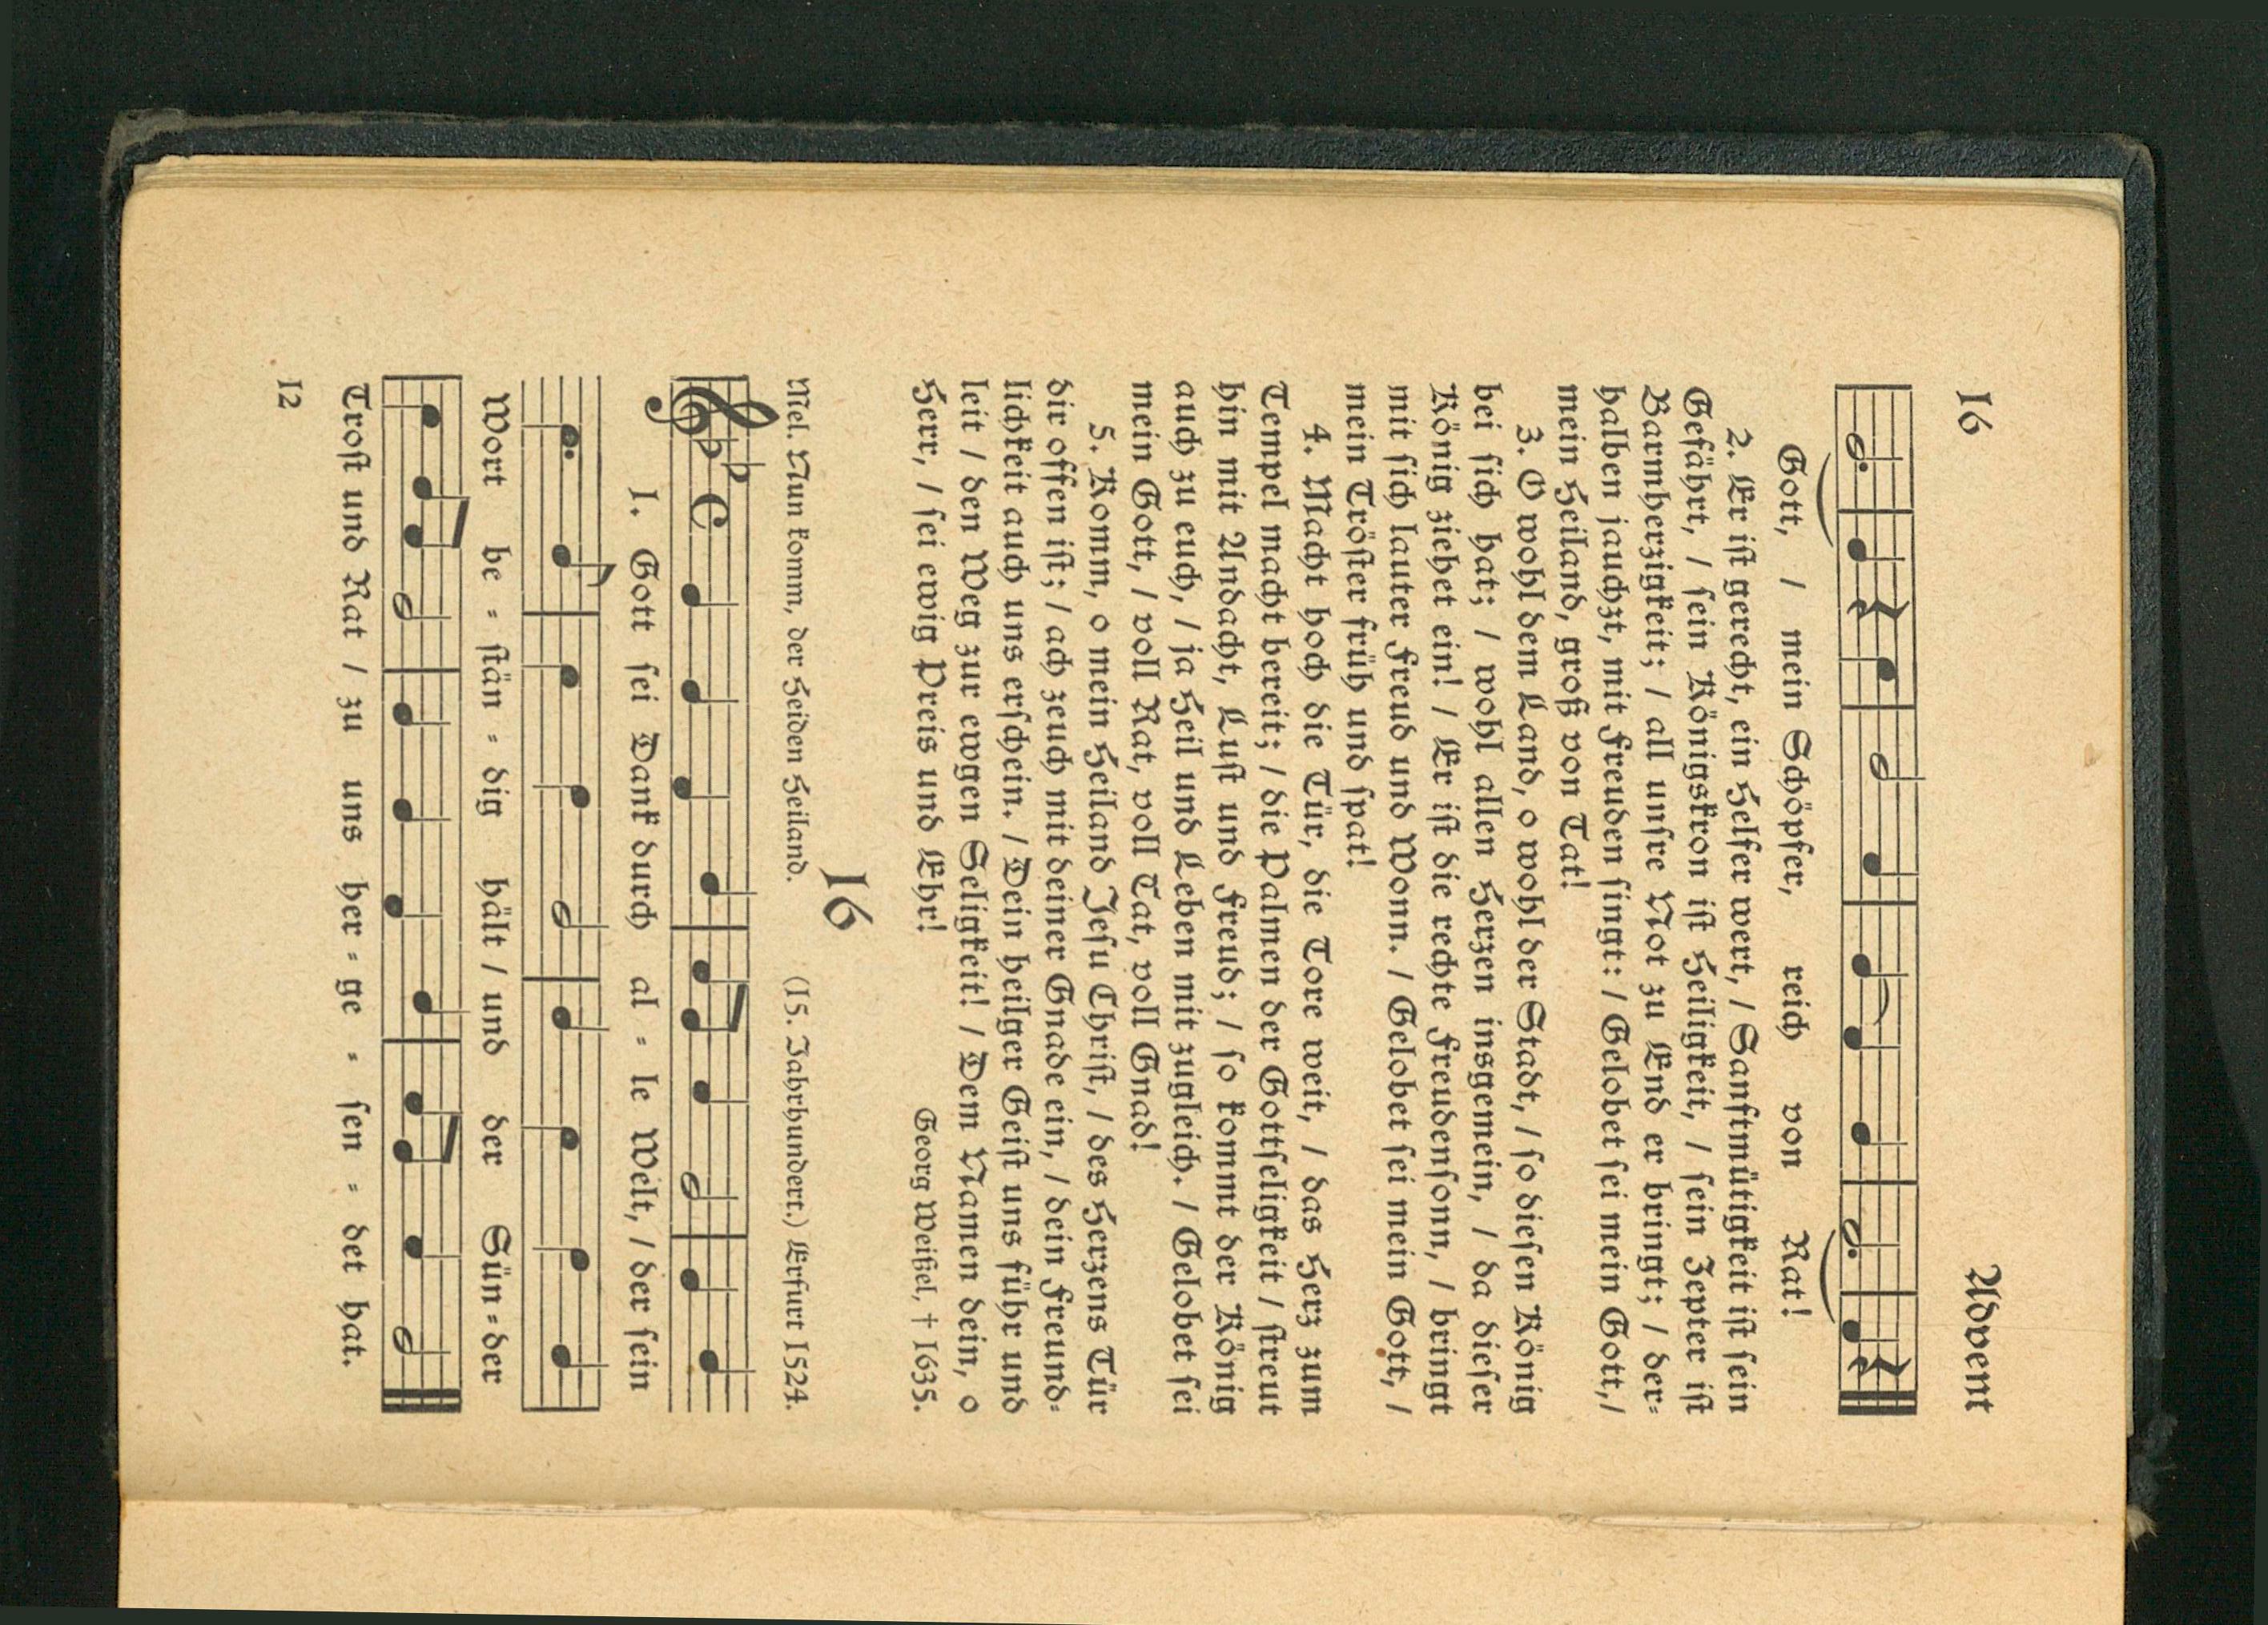 16 Advent
Gott, / mein Schöpfer, reich von Rat!
2. Er ist gerecht, ein Helfer wert, / Sanftmütigkeit ist sein
Gefährt, / sein Königskron ist Heiligkeit, / sein Zepter ist
Barmherzigkeit; / all unsre Not zu End er bringt; / der-
halben jauchzt, mit Freuden singt: / Gelobet sei mein Gott, /
mein Heiland, groß von Tat!
3. O wohl dem Land, o wohl der Stadt, / so diesen König
bei sich hat; / wohl allen Herzen insgemein, / da dieser
König ziehet ein! / Er ist die rechte Freudensonn, / bringt
mit sich lauter Freud und Wonn. / Gelobet sei mein Gott, /
mein Tröster früh und spat!
4. Macht hoch die Tür, die Tore weit, / das Herz zum
Tempel macht bereit; / die Palmen der Gottseligkeit / streut
hin mit Andacht, Lust und Freud; / so kommt der König
auch zu euch, / ja Heil und Leben mit zugleich. / Gelobet sei
mein Gott, / voll Rat, voll Tat, voll Gnad!
5. Komm, o mein Heiland Jesu Christ, / des Herzens Tür
dir offen ist; / ach zeuch mit deiner Gnade ein, / dein Freund-
lichkeit auch uns erschein. / Dein heilger Geist uns führ und
leit / den Weg zur ewgen Seligkeit! / Dem Namen dein, o
Herr, / sei ewig Preis und Ehr!
Georg Weißel, † 1635.
16
Mel. Nun komm, der Heiden Heiland. (15. Jahrhundert.) Erfurt 1524.
1. Gott sei Dank durch al - le Welt, / der sein
Wort be - stän - dig hält / und der Sün - der
Trost und Rat / zu uns her - ge - sen - det hat.
12